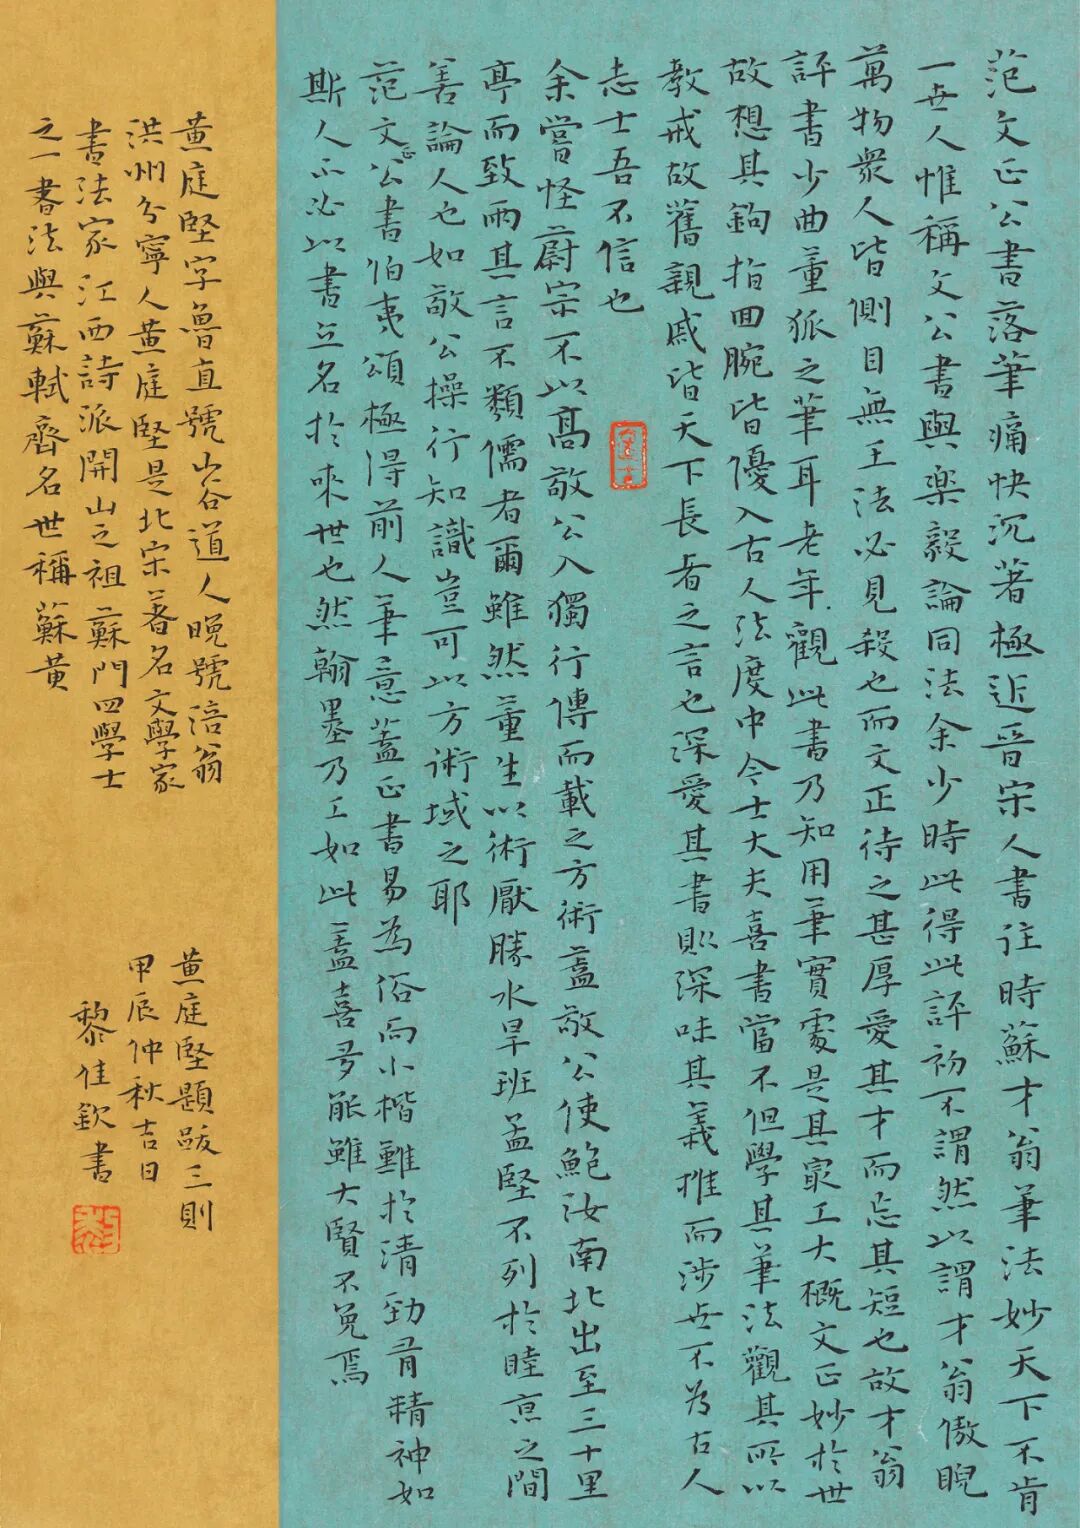 范文正公書落筆痛快沉著極近晉宋人書往時蘇才翁筆法妙天下不肯
一世人惟稱文公書與樂毅論同法余少時此得此評初不謂然以謂才翁傲睨
萬物衆人皆側目無王法必見殺也而文正待之甚厚愛其才而忘其短也故才翁
評書少曲董狐之筆耳老年觀此書乃知用筆實處是其最工大概文正妙於世
故想其鉤指回腕皆優入古人法度中今士大夫喜書當不但學其筆法觀其所以
教戒故舊親戚皆天下長者之言也深愛其書則深味其義推而涉世不為古人
志士吾不信也
余嘗怪蔚宗不以高敬公入獨行傳而載之方術蓋敬公使鮑汝南北出至三十里
亭而致雨其言不類儒者爾雖然董生以術厭勝水旱班孟堅不列於眭京之間
善論人也如敬公操行知識豈可以方術域之耶
范文正公書伯夷頌極得前人筆意蓋正書易為俗而小楷難於清勁有精神如
斯人不必以書立名於來世也然翰墨乃工如此蓋喜多能雖大賢不免焉
黄庭堅字魯直號山谷道人晚號涪翁
洪州分寧人黄庭堅是北宋著名文學家
書法家江西詩派開山之祖蘇門四學士
之一書法與蘇軾齊名世稱蘇黄
黄庭堅題跋三則
甲辰仲秋吉日
黎佳欽書